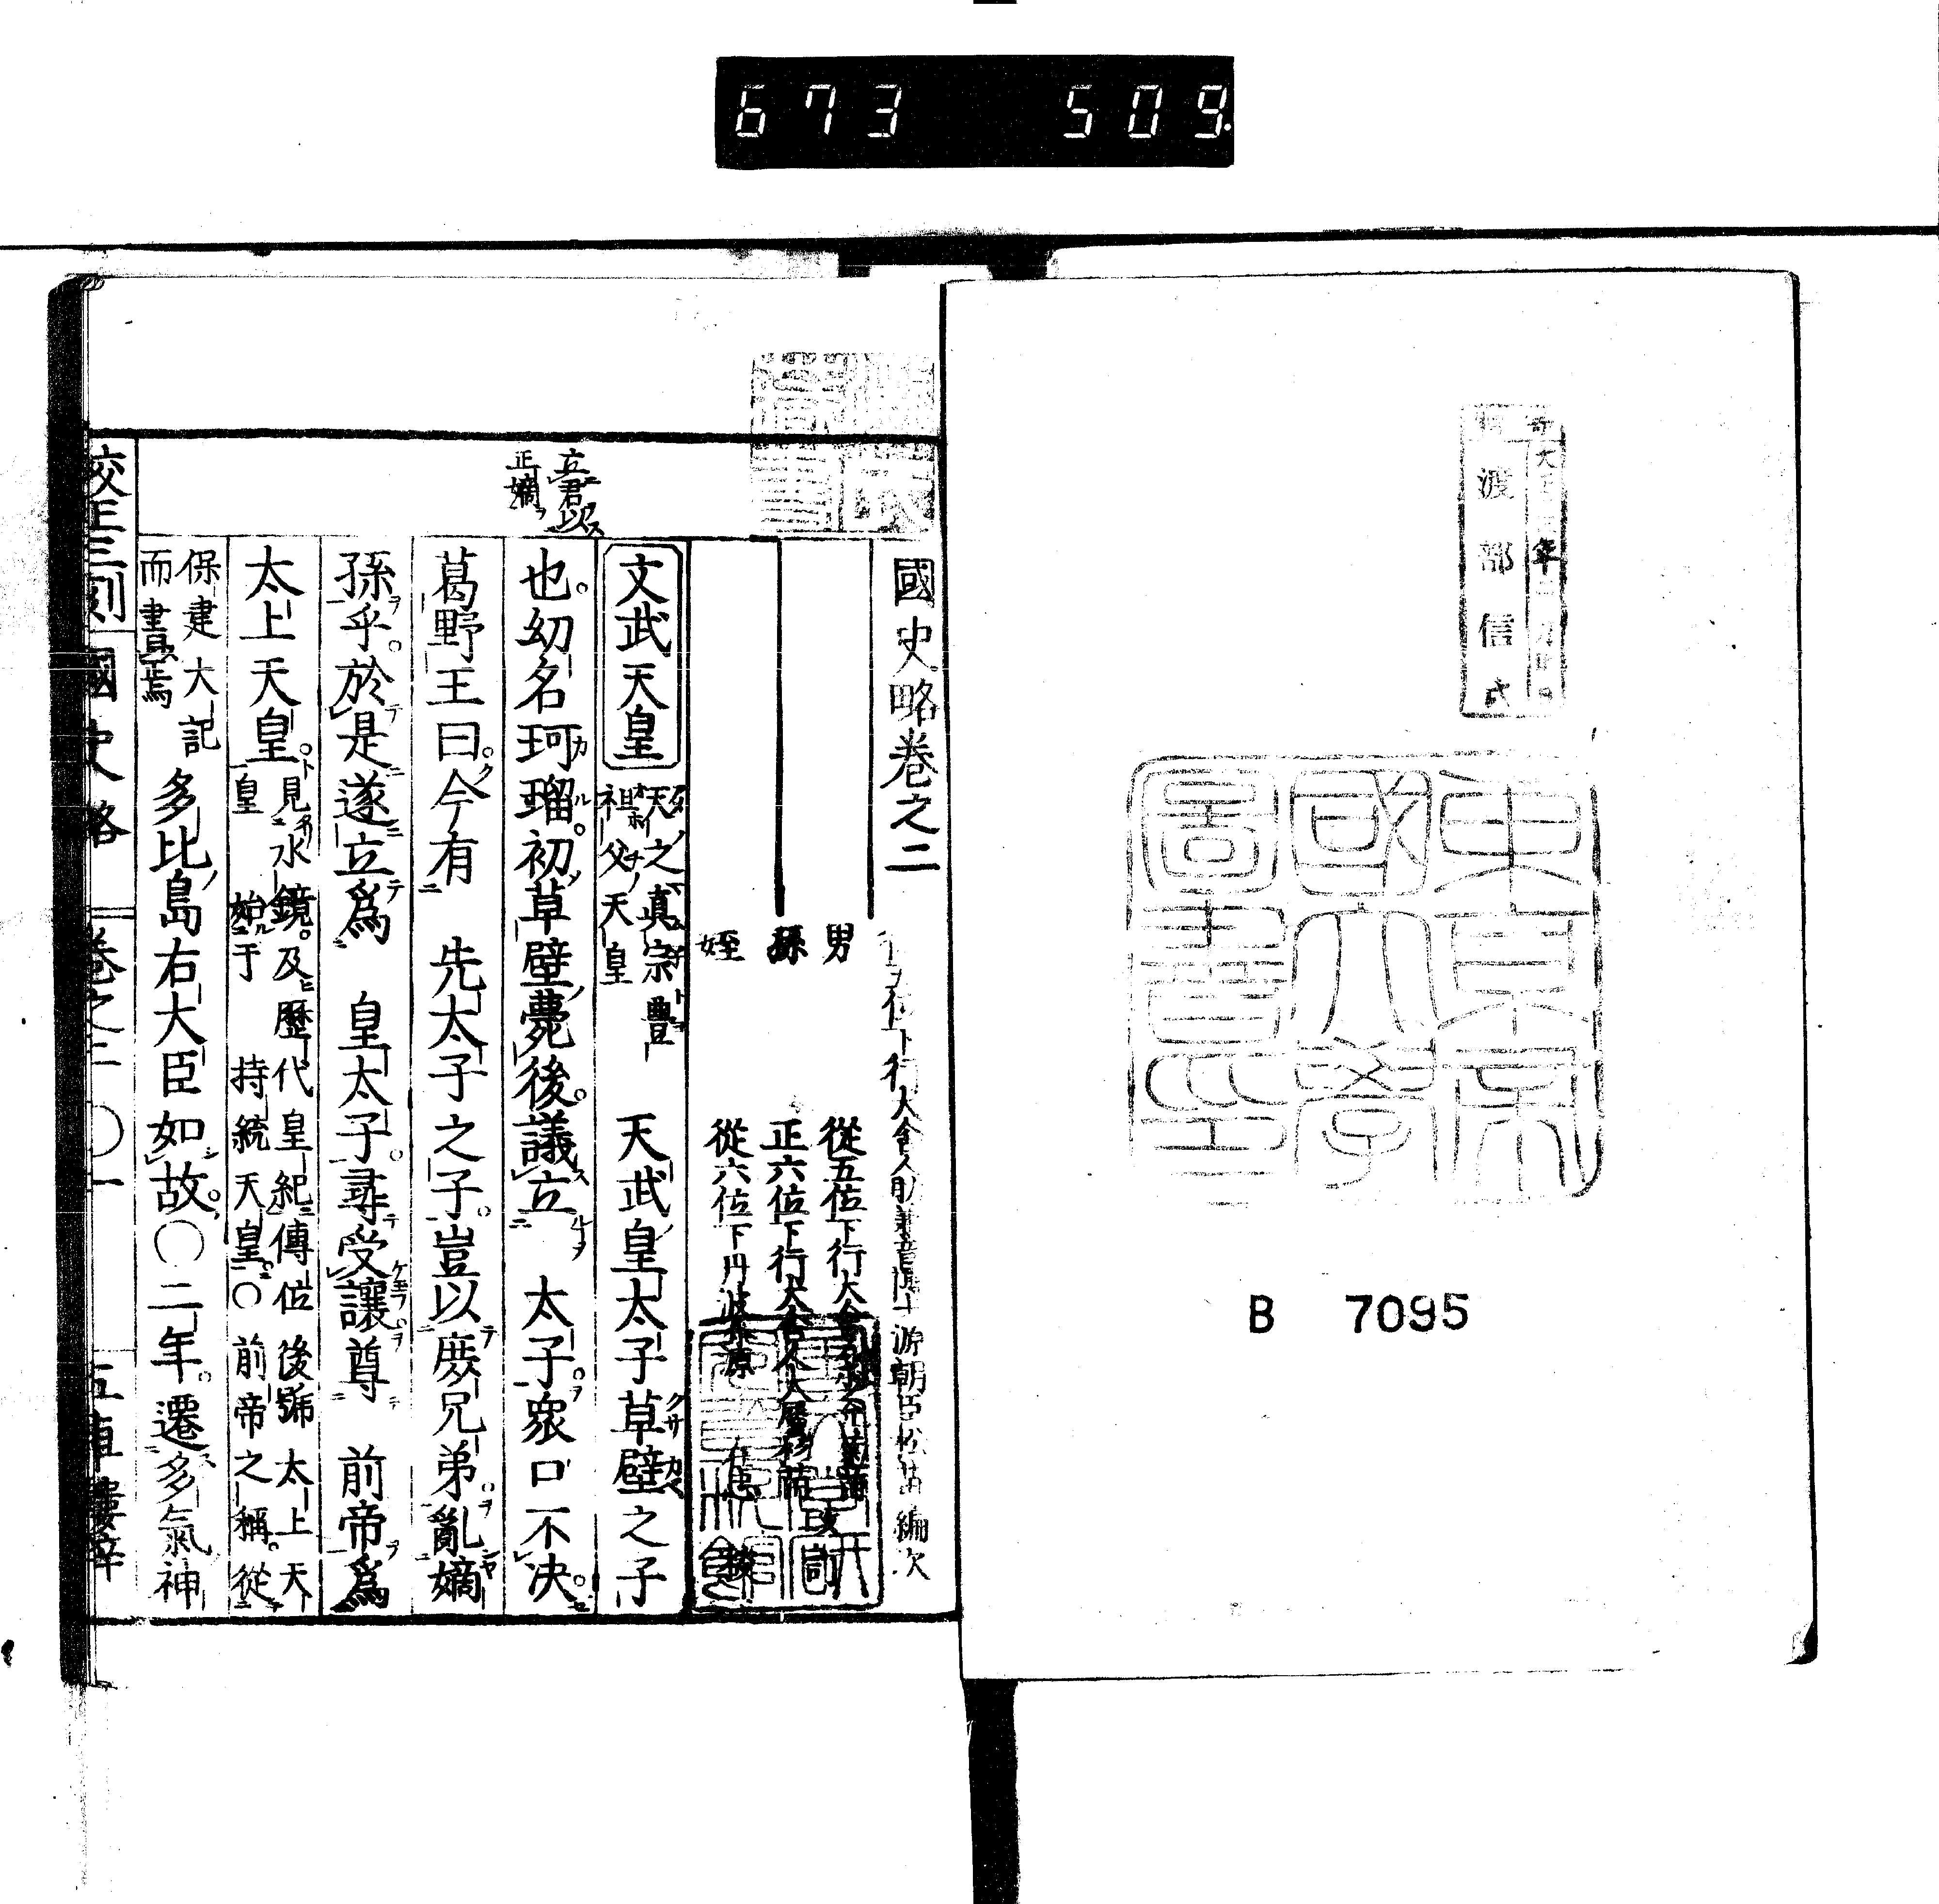 673 509.
渡部信氏
年
東京帝
國大學
圖書印
B 7095
國史略卷之二
位下行大舍人助兼音博士源朝臣松苗編次
男 從五位下行大舍
孫 正六位下行大舍人大屬
姪 從六位下丹波
改訂
校
立君以
正嫡
文武天皇 天之真宗豐
祖父天皇 天武皇太子草壁之子
也。幼名珂瑠。初草壁薨後。議立 太子。衆口不决。
葛野王曰。今有 先太子之子。豈以庶兄弟。亂嫡
孫乎。於是遂立爲 皇太子。尋受讓尊 前帝爲
太上天皇。見水鏡。及歷代皇紀傳位後號太上天
皇 始于 持統天皇。○前帝之稱。從
保建大記
而書焉 多比島右大臣如故。○二年。遷多氣神
校正三刻 國史略 卷之二 ○一 五車樓梓